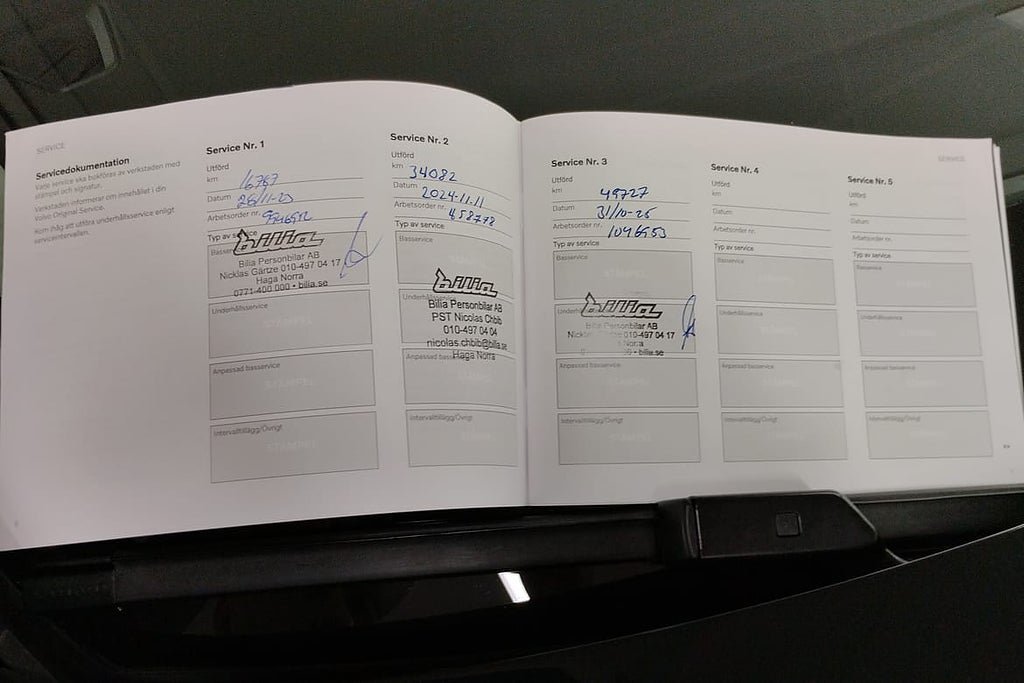 SERVICE
Servicedokumentation
Varje service ska bokföras av verkstaden med
stämpel och signatur.
Verkstaden informerar om innehållet i din
Volvo Original Service.
Kom ihåg att utföra underhållsservice enligt
serviceintervallen.
Service Nr. 1
Utförd
km 16767
Datum
Arbetsorder nr.
Typ av service
bilia
Bilia Personbilar AB
Nicklas Gärtze 010-497 04 17
Haga Norra
0771-400 000 • bilia.se
Underhållsservice
STÄMPEL
Anpassad basservice
STÄMPEL
Intervalltillägg/Övrigt
STÄMPEL
Service Nr. 2
Utförd
km 34082
Datum 2024-11-11
Arbetsorder nr. 458778
Typ av service
Basservice
bilia
Bilia Personbilar AB
PST Nicolas Chbib
010-497 04 04
nicolas.chbib@bilia.se
Haga Norra
Anpassad basservice
Intervalltillägg/Övrigt
Service Nr. 3
Utförd
km 49727
Datum 31/10-25
Arbetsorder nr. 1046953
Typ av service
Basservice
STÄMPEL
bilia
Bilia Personbilar AB
010-497 04 17
• bilia.se
Anpassad basservice
STÄMPEL
Intervalltillägg/Övrigt
STÄMPEL
SERVICE
Service Nr. 4
Utförd
km
Datum
Arbetsorder nr.
Typ av service
Basservice
Underhållsservice
Anpassad basservice
Intervalltillägg/Övrigt
Service Nr. 5
Utförd
km
Datum
Arbetsorder nr.
Typ av service
Basservice
Underhållsservice
Anpassad basservice
Intervalltillägg/Övrigt